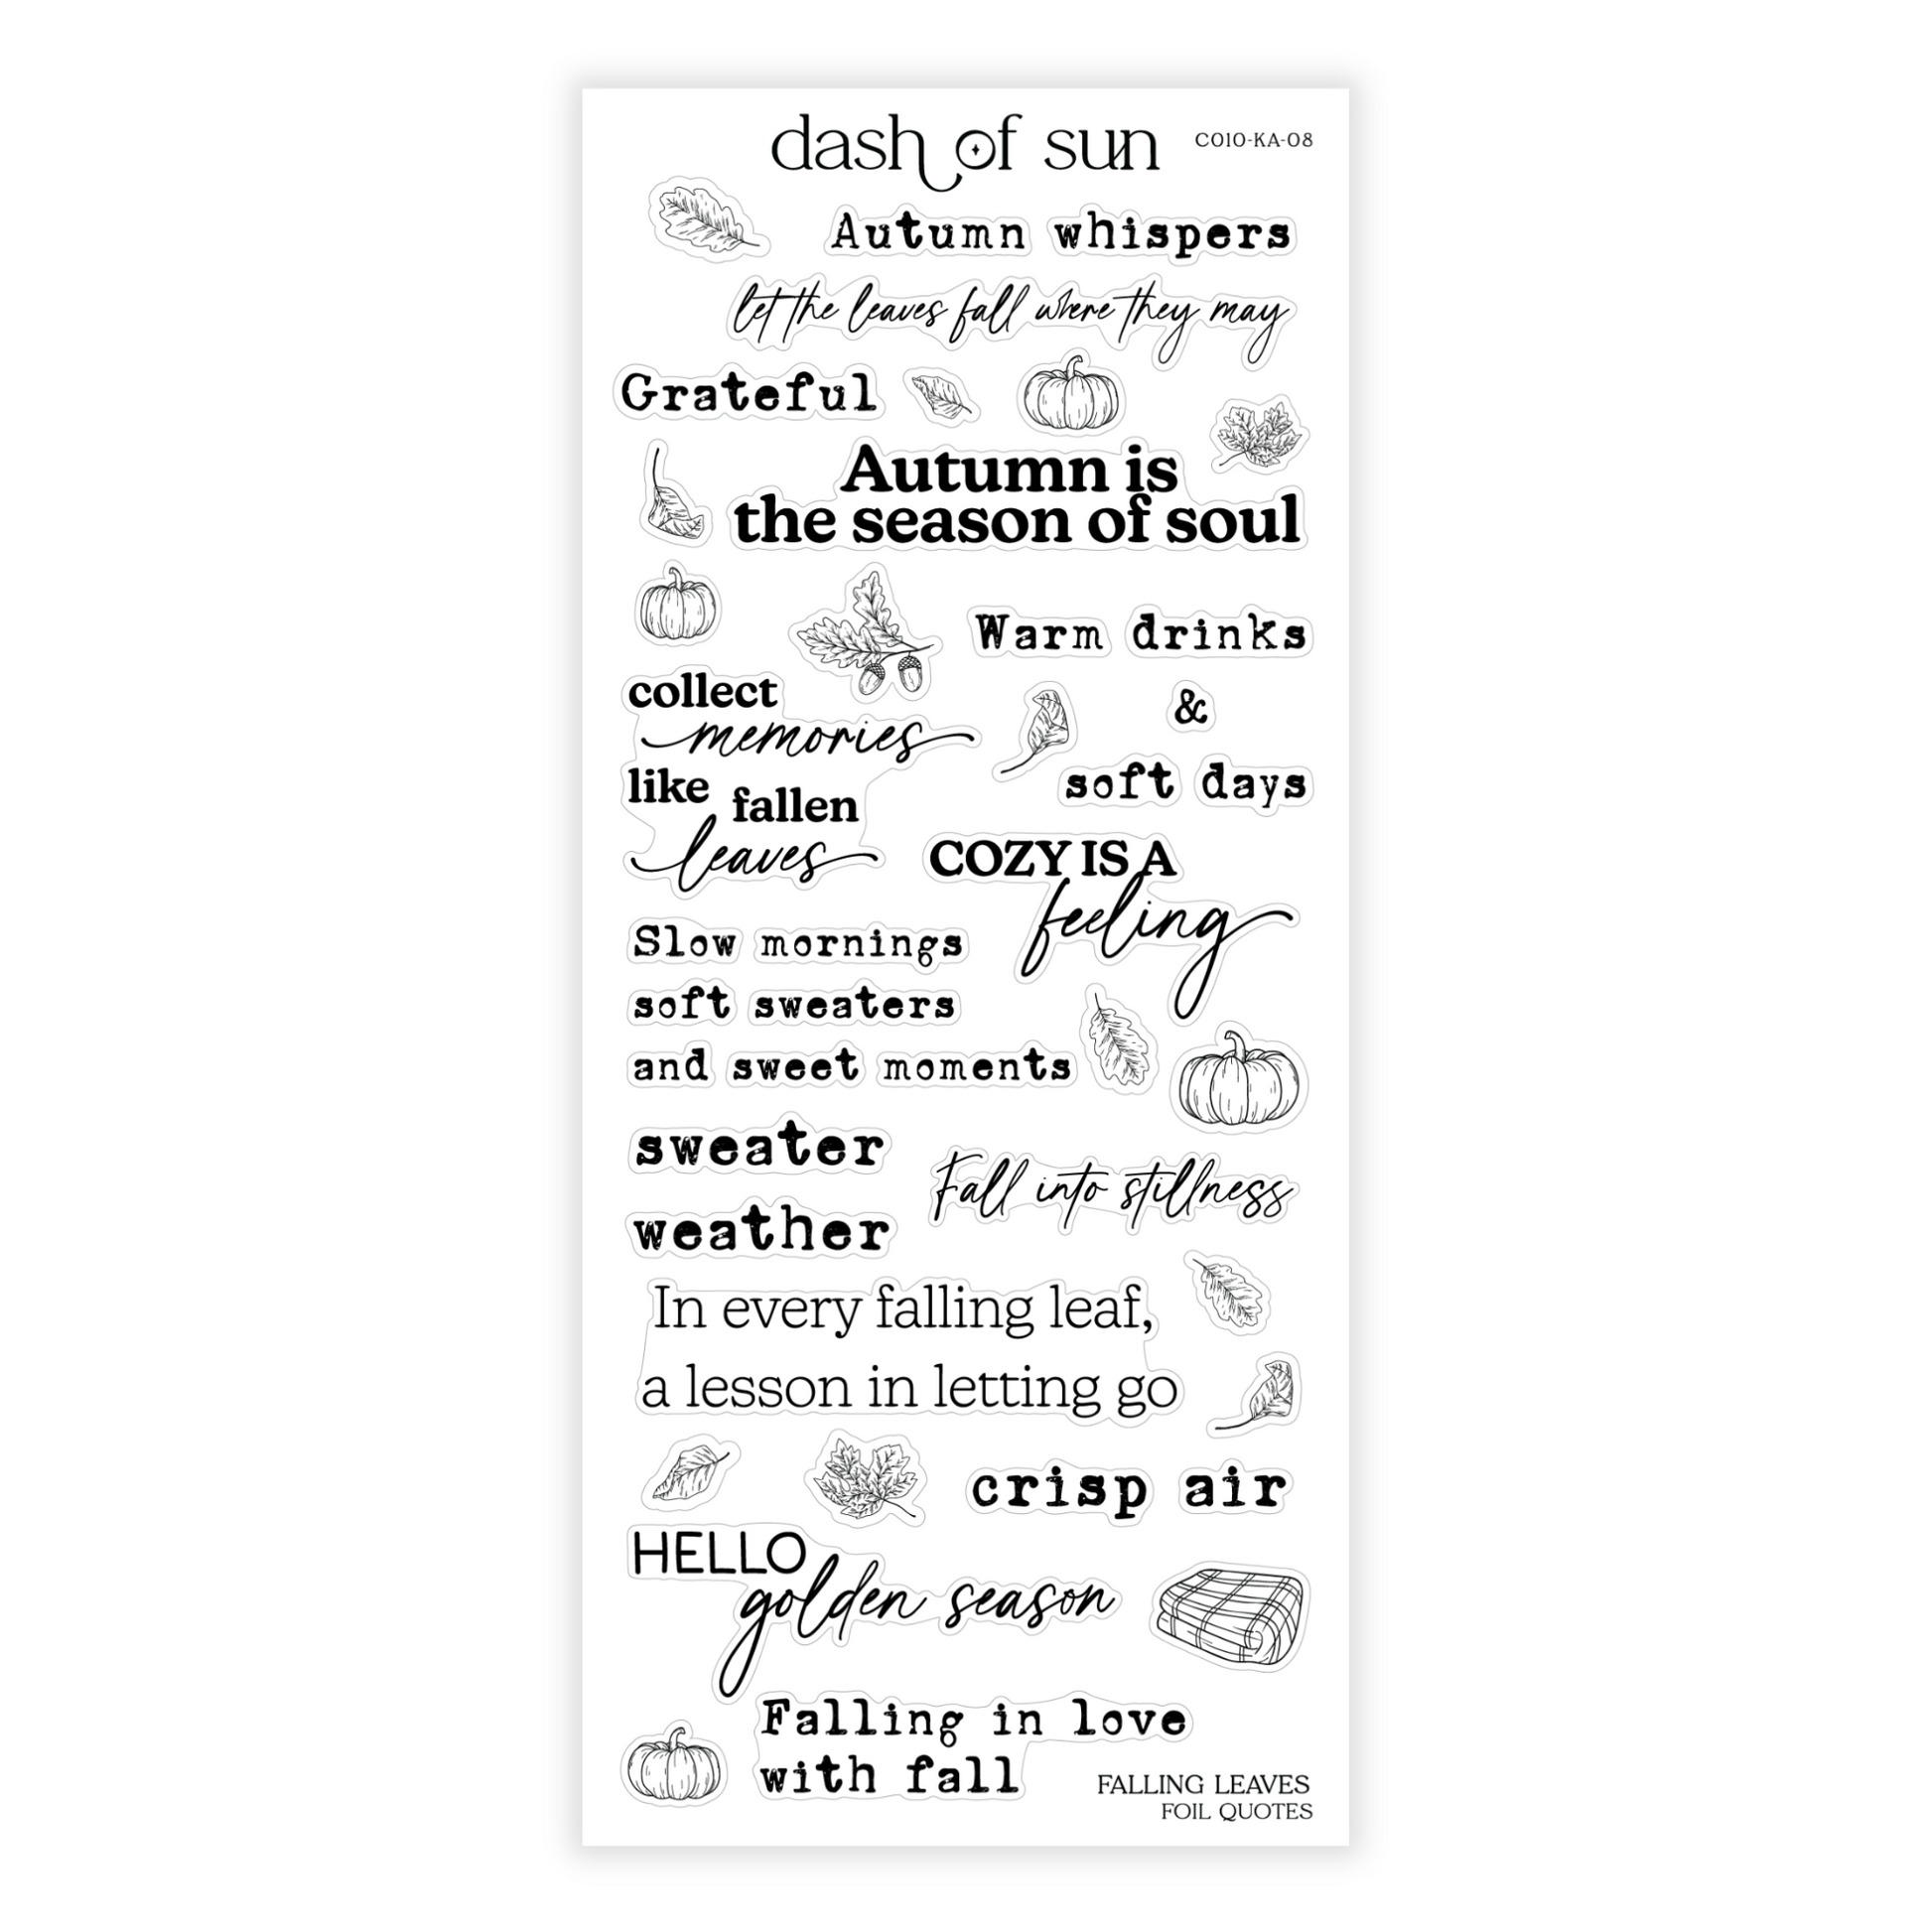 dash of sun
C010-KA-08
Autumn whispers
let the leaves fall where they may
Grateful
Autumn is
the season of soul
Warm drinks
&
soft days
collect
memories
like fallen
leaves
COZY IS A
feeling
Slow mornings
soft sweaters
and sweet moments
sweater
weather
Fall into stillness
In every falling leaf,
a lesson in letting go
crisp air
HELLO
golden season
Falling in love
with fall
FALLING LEAVES
FOIL QUOTES